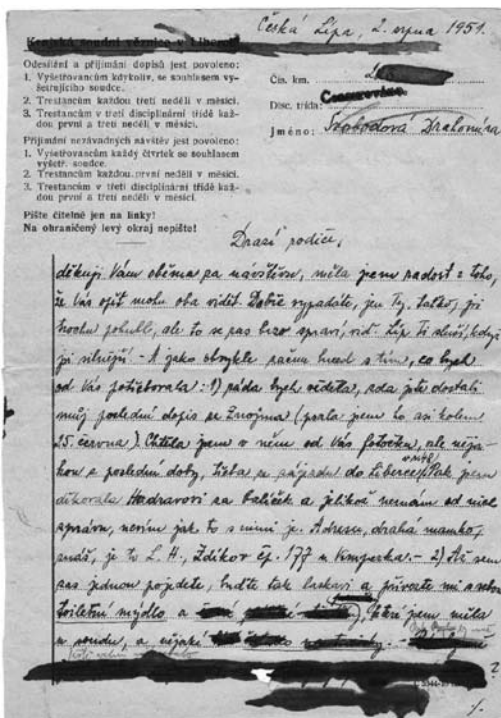 Česká Lípa, 2. srpna 1951.
Krajská soudní věznice v Liberci
Odesílání a přijímání dopisů jest povoleno:
1. Vyšetřovancům kdykoliv, se souhlasem vy-
šetřujícího soudce.
2. Trestancům každou třetí neděli v měsíci.
3. Trestancům v třetí disciplinární třídě kaž-
dou první a třetí neděli v měsíci.
Přijímání nezávadných návštěv jest povoleno:
1. Vyšetřovancům každý čtvrtek se souhlasem
vyšetř. soudce.
2. Trestancům každou první neděli v měsíci.
3. Trestancům v třetí disciplinární třídě kaž-
dou první a třetí neděli v měsíci.
Pište čitelně jen na linky!
Na ohraničený levý okraj nepište!
Čís. km.
Censurováno.
Disc. třída:
Jméno: Svobodová Drahomíra
Drazí rodiče,
děkuji Vám oběma za návštěvu, měla jsem radost z toho,
že Vás opět mohu oba vidět. Dobře vypadáte, jen Ty, taťko, jsi
trochu pohubl, ale to se zas brzo spraví, viď. Líp Ti sluší, když
jsi silnější. - A jako obvykle začnu hned s tím, co bych
od Vás potřebovala: 1) ráda bych věděla, zda jste dostali
můj poslední dopis ze Znojma (psala jsem to asi kolem
25. června). Chtěla jsem v něm od Vás fotočku, ale něja-
kou z poslední doby, třeba ze zájezdu do Liberce. Pak jsem
děkovala Hadravovi za balíček a jelikož nemám od nich
zprávu, nevím jak to s nimi je. Adresu, drahá mamko,
znáš, je to L. H., Zdíkov čp. 177 u Vimperka. - 2) Až sem
zas jednou pojedete, buďte tak laskaví a přivezte mi s sebou
toiletní mýdlo a které jsem měla
u soudu, a nějaké
?
·/.